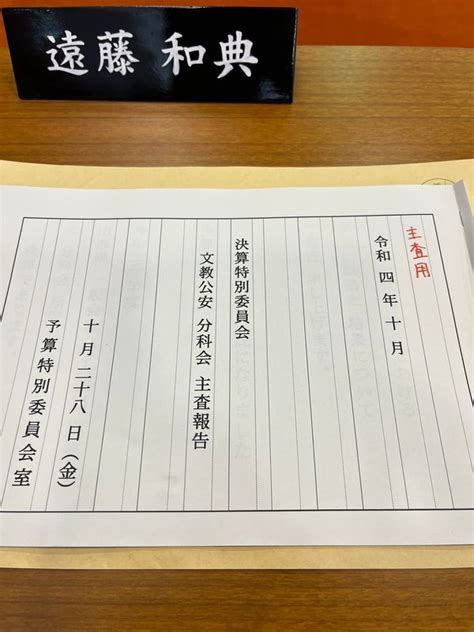 遠藤 和典
主査用
令和四年十月
決算特別委員会
文教公安 分科会 主査報告
十月二十八日(金)
予算特別委員会室